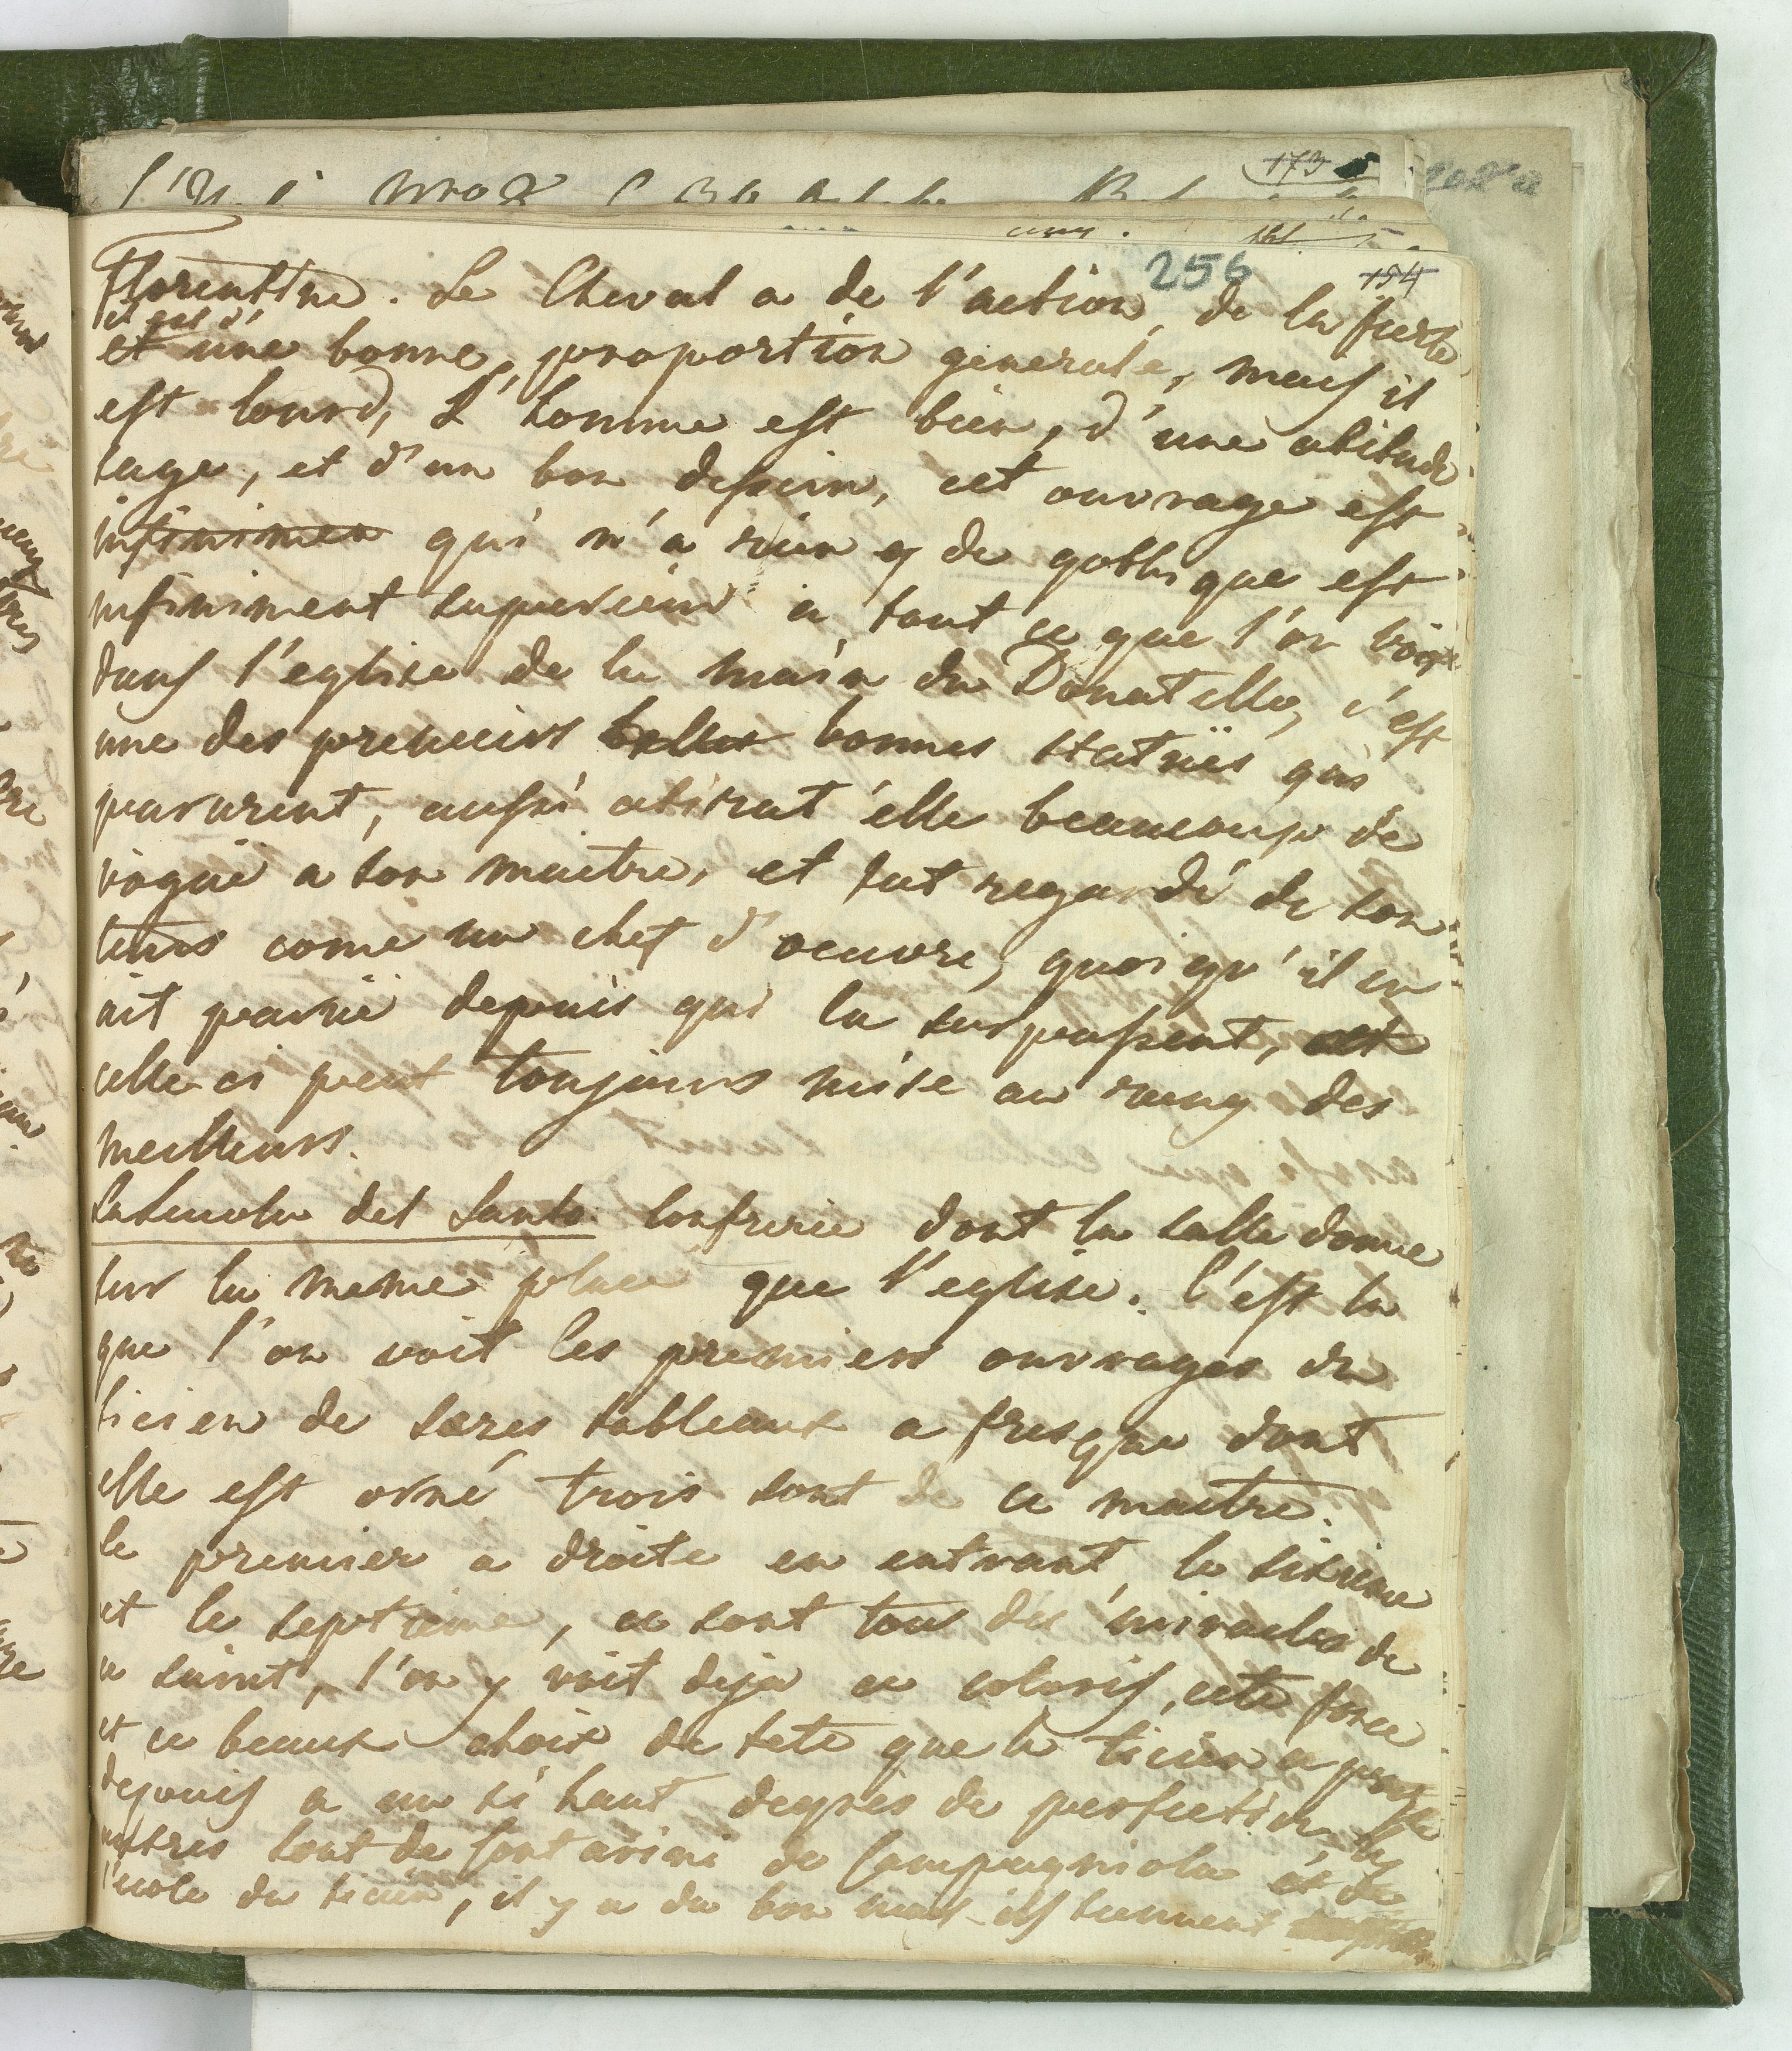 173
256
154
Florentine. Le Cheval a de l'action, de la fierte
et est d'
et une bonne, proportion generale, mais il
est lourd, L'homme est bien, d'une atitude
sage, et d'un bon dessein, cet ouvrage est
infinimen qui n'a rien de gothique est
infiniment superieur a tout ce que l'on voit
dans l'eglise de la main du Donatello, c'est
une des premieres belles bonnes statuës qui
parurent, aussi atirat elle beaucoup de
vogue a son maitre, et fut regardé de son
tems come un chef d'oeuvre, quoi qu'il en
ait parue depuis qui la surpassent, et
celle ci peut toujours mise au rang des
meilleurs.
La Scuola del Santo confrerie dont la salle donne
sur la meme place que l'eglise. C'est la
que l'on voit les premiers ouvrages du
ticien de sezes tableaux a fresque dont
elle est orné trois sont de ce maitre.
le premier a droite en entrant, le sixieme
et le septieme, ce sont tous des miracles de
ce saint, l'on y voit deja ce coloris, cete force
et ce beaux choix de tete que le ticien a
depuis a un si haut degres de perfection, les
autres sont de Contarini de Campagniola et de
l'ecole du ticien, il y a du bon mais ils tiennent